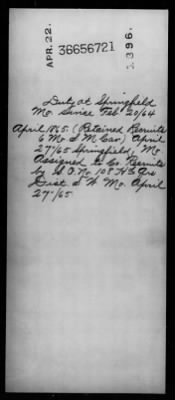 APR. 22.
36656721
1396.
Duty at Springfield
Mo. Since Feb 20/64
April 1865. (Retained Recruits
6 Mo S M Cav) April
27"/65 Springfield, Mo
Assigned to Co Recruits
by S.O. No 108 Hd Qrs
Dist S W Mo. April
27"/65